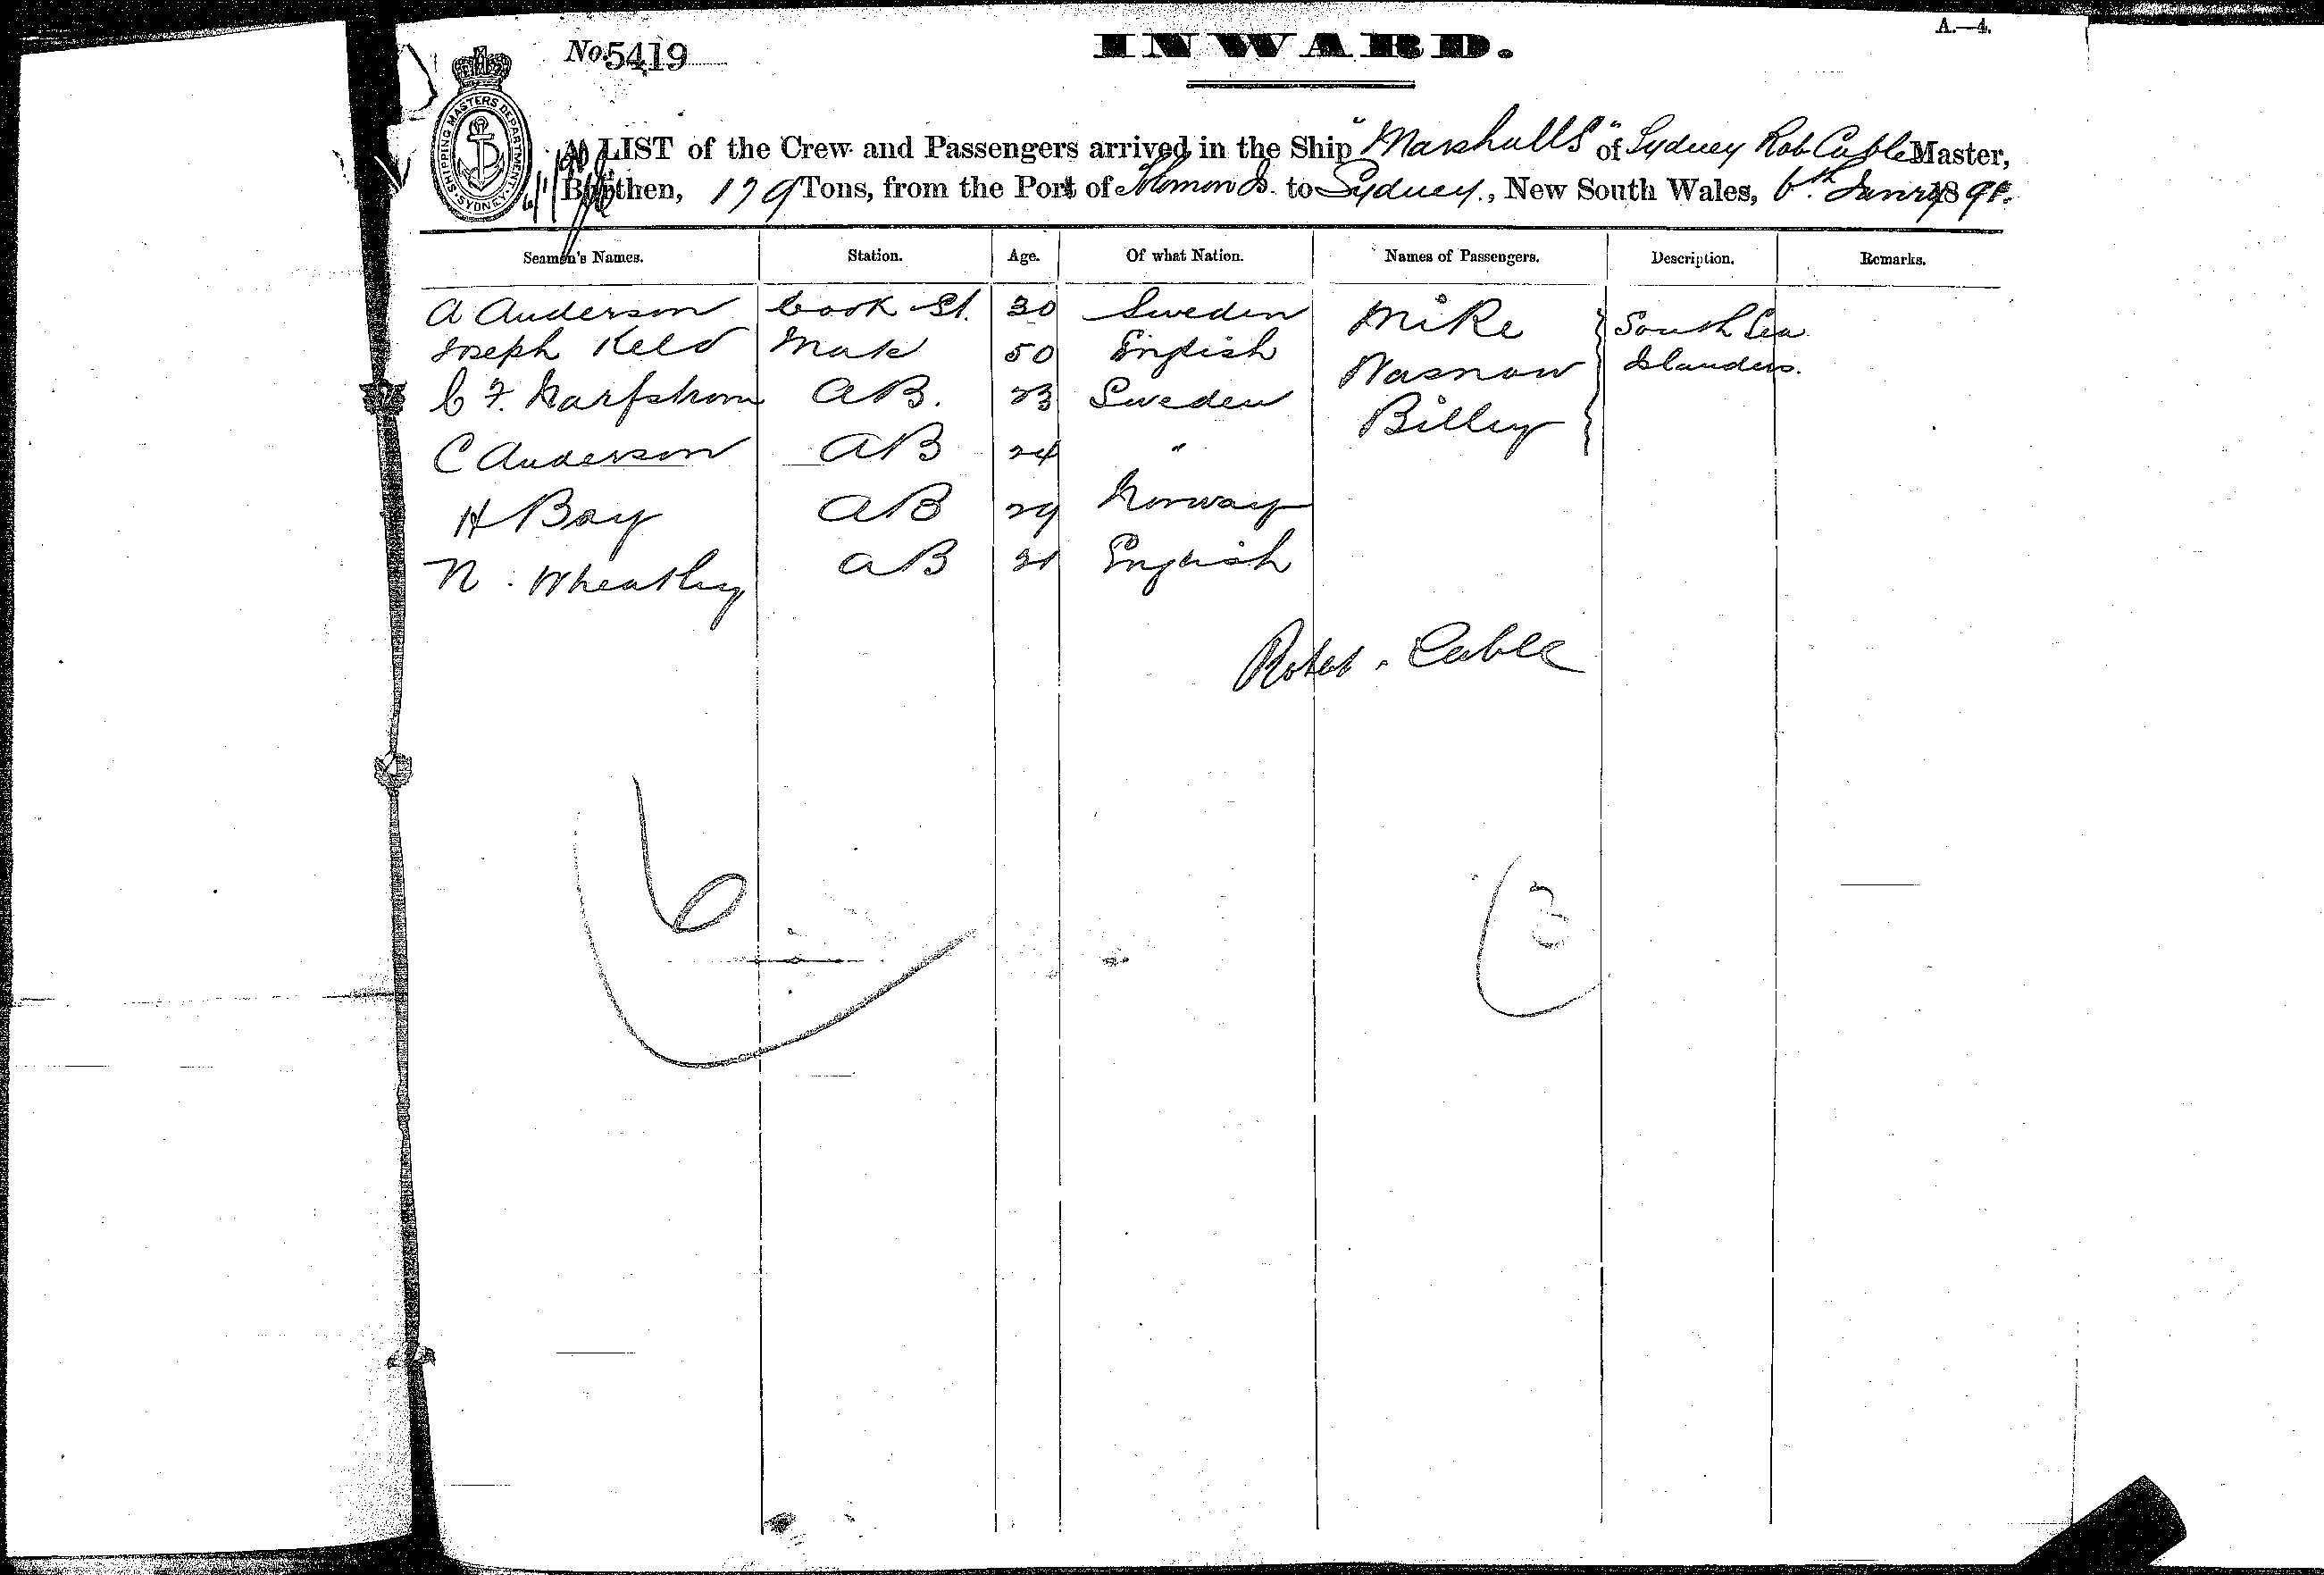 A.—4.
No. 5419
INWARD.
SHIPPING MASTERS DEPARTMENT SYDNEY
A LIST of the Crew and Passengers arrived in the Ship "Marshall S" of Sydney Rob Cable Master,
Burthen, 179 Tons, from the Port of Solomon Is. to Sydney, New South Wales, 6th Janry 18
Seamen's Names. Station. Age. Of what Nation. Names of Passengers. Description. Remarks.
A Anderson Cook St. 30 Sweden Mike South Sea
Joseph Mate 50 English Islanders.
C F. AB. 23 Sweden
C Anderson AB 24 " Billey
H Bay AB 29 Norway
N. Wheatley AB English
Robt. Cable
6
3